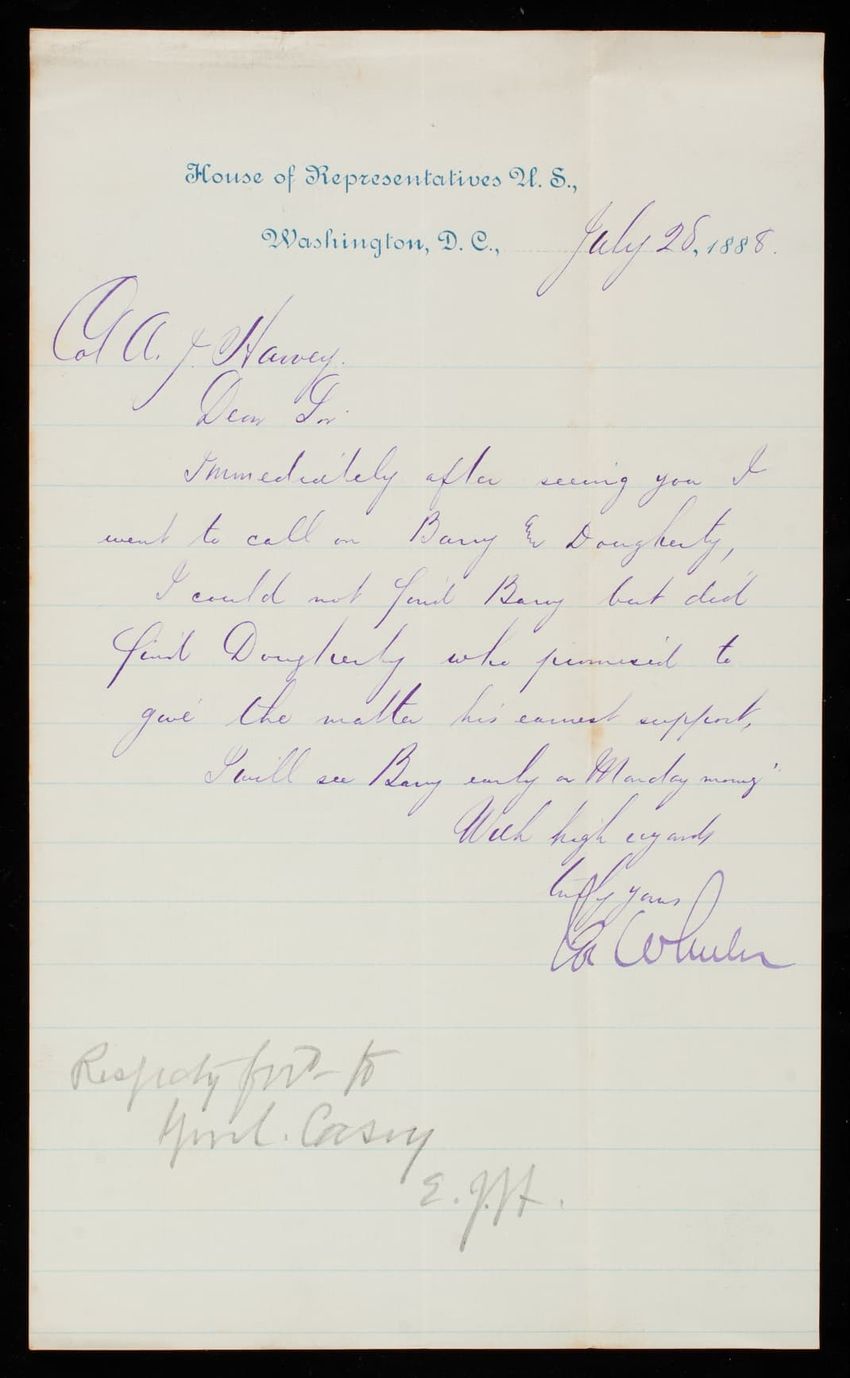 House of Representatives U. S.,
Washington, D. C., July 28, 1888.
Col A. J. Harvey.
Dear Sir
Immediately after seeing you I
went to call on Barry & Dougherty,
I could not find Barry but did
find Dougherty who promised to
give the matter his earnest support,
I will see Barry early on Monday morng
With high regards
truly yours
Jos Wheeler
Respcty ford to
Genl. Casey
E. J. H.